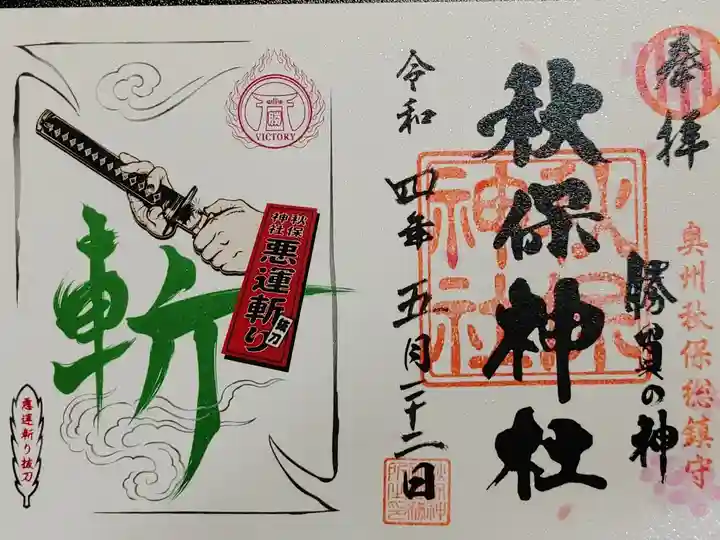 奉拝
奥州秋保総鎮守
勝負の神
秋保神社
秋保神社
令和四年五月二十二日
勝
VICTORY
斬
秋保神社
悪運斬り
抜刀
悪運斬り抜刀